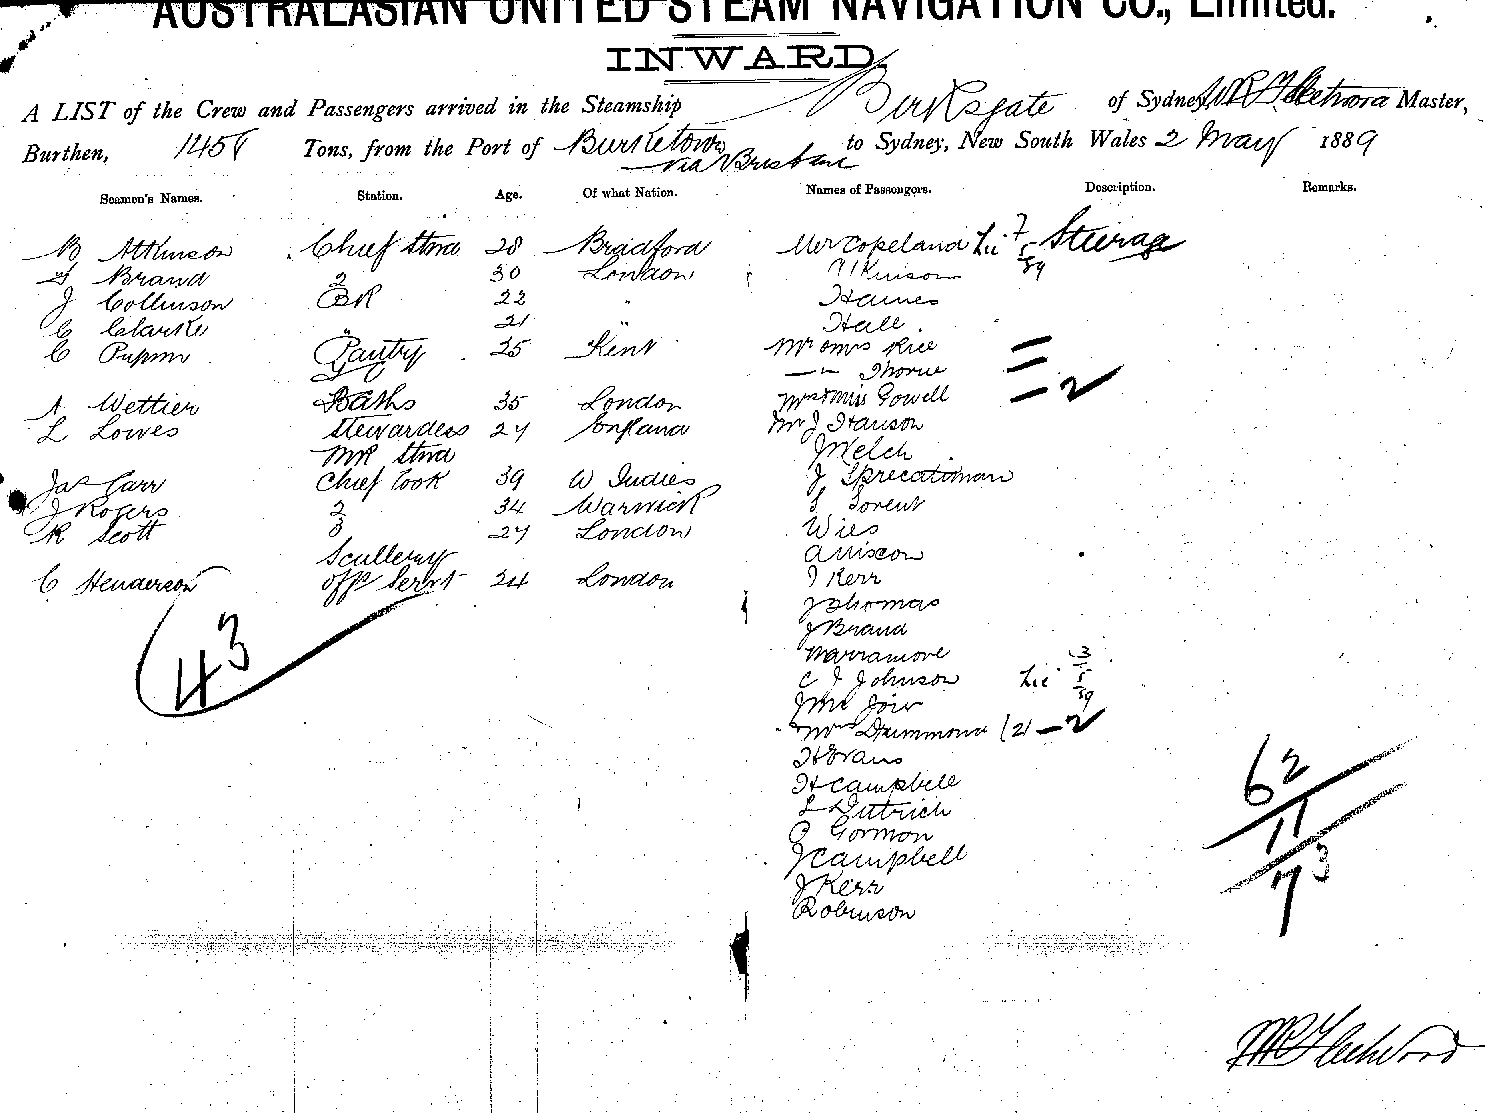 AUSTRALASIAN UNITED STEAM NAVIGATION CO., Limited.
INWARD.
A LIST of the Crew and Passengers arrived in the Steamship Birksgate of Sydney, Master,
Burthen, 1458 Tons, from the Port of Burketown to Sydney, New South Wales 2 May 1889
via Brisbane
Seamen's Names. Station. Age. Of what Nation. Names of Passengers. Description. Remarks.
B Atkinson Chief Stwd 28 Bradford Mr Copeland Lic 7/5/89 Steerage
Brand 2 30 London Atkinson
J Collinson BR 22 " Haines
C Clarke " 21 " Hall
C Pupm Pantry 25 Kent Mr & Mrs Rice
— " — Thorne
A Wettier Baths 35 London Mrs & Miss Gowell 2
L Lowes Stewardess 27 England Mr J Hanson
Mr Stwd J Welch
Jas Carr Chief Cook 39 W Indies J
J Rogers 2 34 Warwick S Sorent
R Scott 3 27 London Wies
Scullery
C Henderson Offs Servt 24 London J Kerr
J Thomas
43 J Brand
Marramore
C J Johnson Lic 3/5/89
Jno
Mrs Drummond (2) — 2
H Evans
H Campbell
L Dittrich
62
Gormon
11
J Campbell
73
J Kerr
Robinson